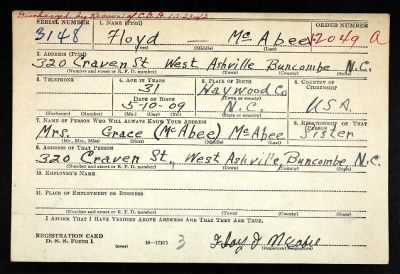 SERIAL NUMBER 1. NAME (Print) ORDER NUMBER
3148 Floyd McAbee 12049 A
(First) (Middle) (Last)
2. ADDRESS (Print)
320 Craven St West Ashville Buncombe N.C.
(Number and street or R. F. D. number) (Town) (County) (State)
3. TELEPHONE 4. AGE IN YEARS 5. PLACE OF BIRTH 6. COUNTRY OF CITIZENSHIP
31 Haywood Co
DATE OF BIRTH (Town or county)
5-10-09 N.C. USA
(Exchange) (Number) (Mo.) (Day) (Yr.) (State or country)
7. NAME OF PERSON WHO WILL ALWAYS KNOW YOUR ADDRESS 8. RELATIONSHIP OF THAT PERSON
Mrs. Grace (McAbee) McAbee Sister
(Mr., Mrs., Miss) (First) (Middle) (Last)
9. ADDRESS OF THAT PERSON
320 Craven St., West Ashville, Buncombe, N.C.
(Number and street or R. F. D. number) (Town) (County) (State)
10. EMPLOYER'S NAME
11. PLACE OF EMPLOYMENT OR BUSINESS
(Number and street or R. F. D. number) (Town) (County) (State)
I AFFIRM THAT I HAVE VERIFIED ABOVE ANSWERS AND THAT THEY ARE TRUE.
REGISTRATION CARD
D. S. S. FORM 1 (over) 16-17105 3 Floyd J McAbee